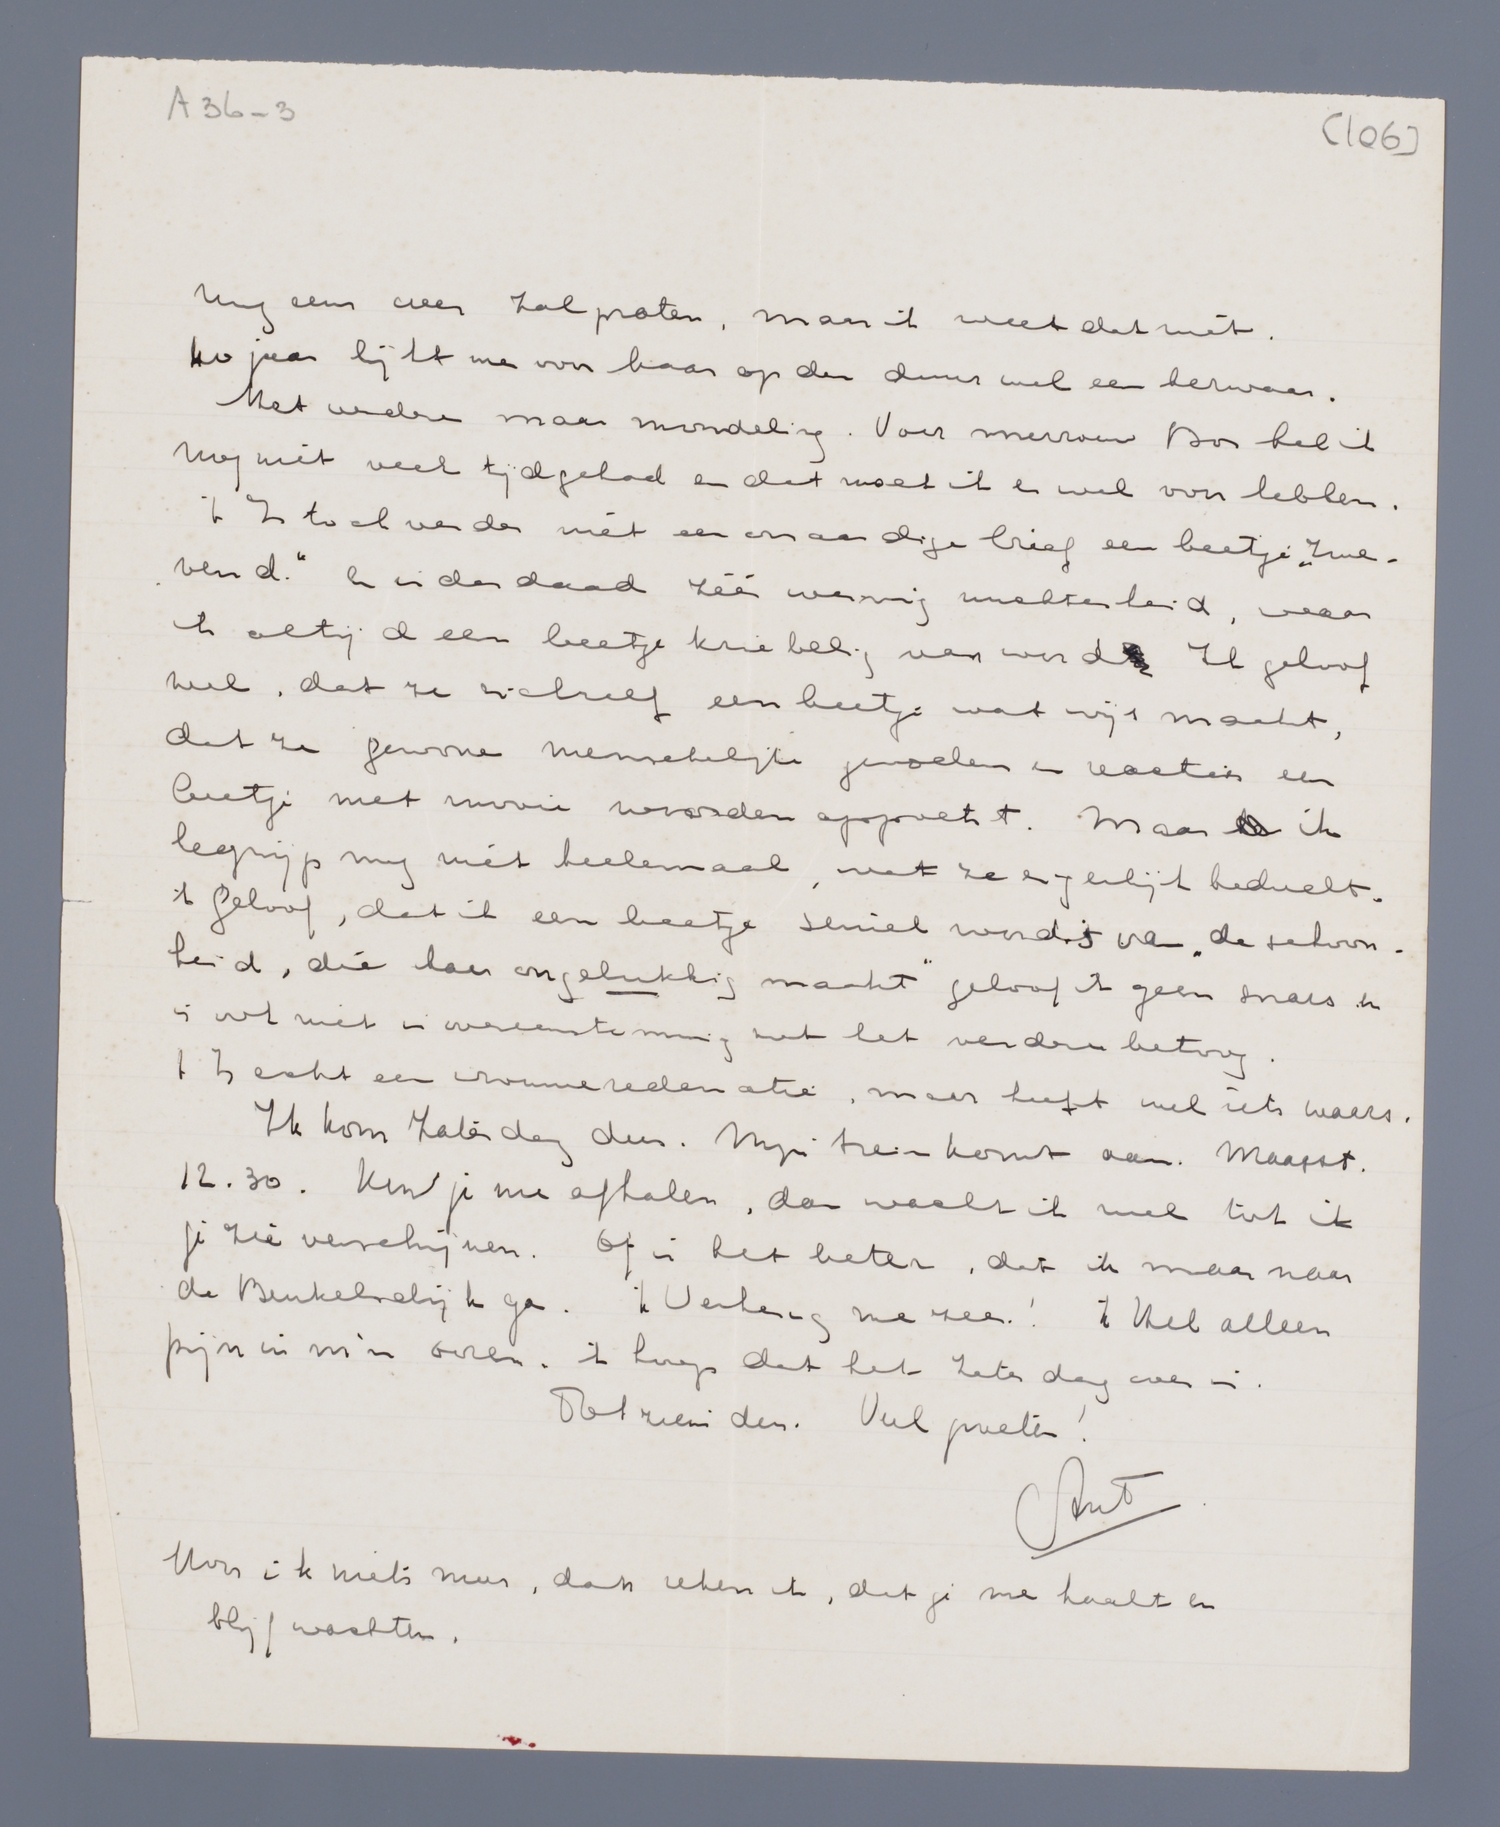 A36-3
[106]
nog eens over zal praten, maar ik weet dat niet.
40 jaar lijkt me voor haar op den duur wel een bezwaar.
Het verdere maar mondeling. Voor mevrouw Bos heb ik
nog niet veel tijd gehad en dat moet ik er wel voor hebben.
't Is toch verder niet een onaardige brief een beetje „zwe-
vend." En inderdaad zéér weinig nuchterheid, waar
ik altijd een beetje kriebelig van word. Ik geloof
wel, dat ze zichzelf een beetje wat wijs maakt,
dat ze gewone menschelijke gevoelens en reacties een
beetje met mooie woorden oppoetst. Maar ik
begrijp nog niet heelemaal, wat ze eigenlijk bedoelt.
'k Geloof, dat ik een beetje seniel word: van „de schoon-
heid, die haar ongelukkig maakt" geloof ik geen snars en
is ook niet in overeenstemming met het verdere betoog.
't Is echt een vrouwenredenatie, maar heeft wel iets waars.
Ik kom Zaterdag dus. Mijn trein komt aan. Maasst.
12.30. Kun je me afhalen, dan wacht ik wel tot ik
je zie verschijnen. Of is het beter, dat ik maar naar
de Beukelsdijk ga. 'k Verheug me zeer! 'k Heb alleen
pijn in m'n ooren. 'k hoop dat het Zaterdag over is.
Tot ziens dus. Veel praten!
Ant
Hoor ik niets meer, dan reken ik, dat je me haalt en
blijf wachten.